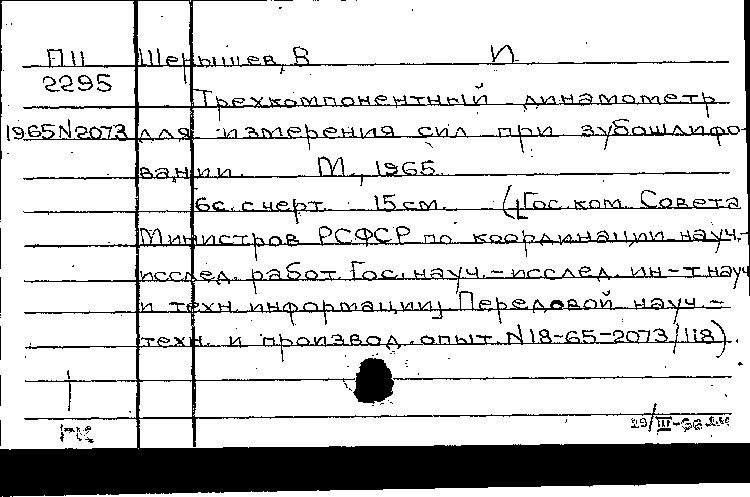 ПII Шенышев, В И
2295
Трехкомпонентный динамометр
1965N2073 для измерения сил при зубошлифо-
вании. М., 1965.
6с. с черт. 15 см. ([Гос. ком. Совета
Министров РСФСР по координации науч.-
исслед. работ. Гос. науч.-исслед. ин-т науч
и техн. информации] Передовой науч.-
техн. и производ. опыт. N18-65-2073/118).
ГК
29/III-66